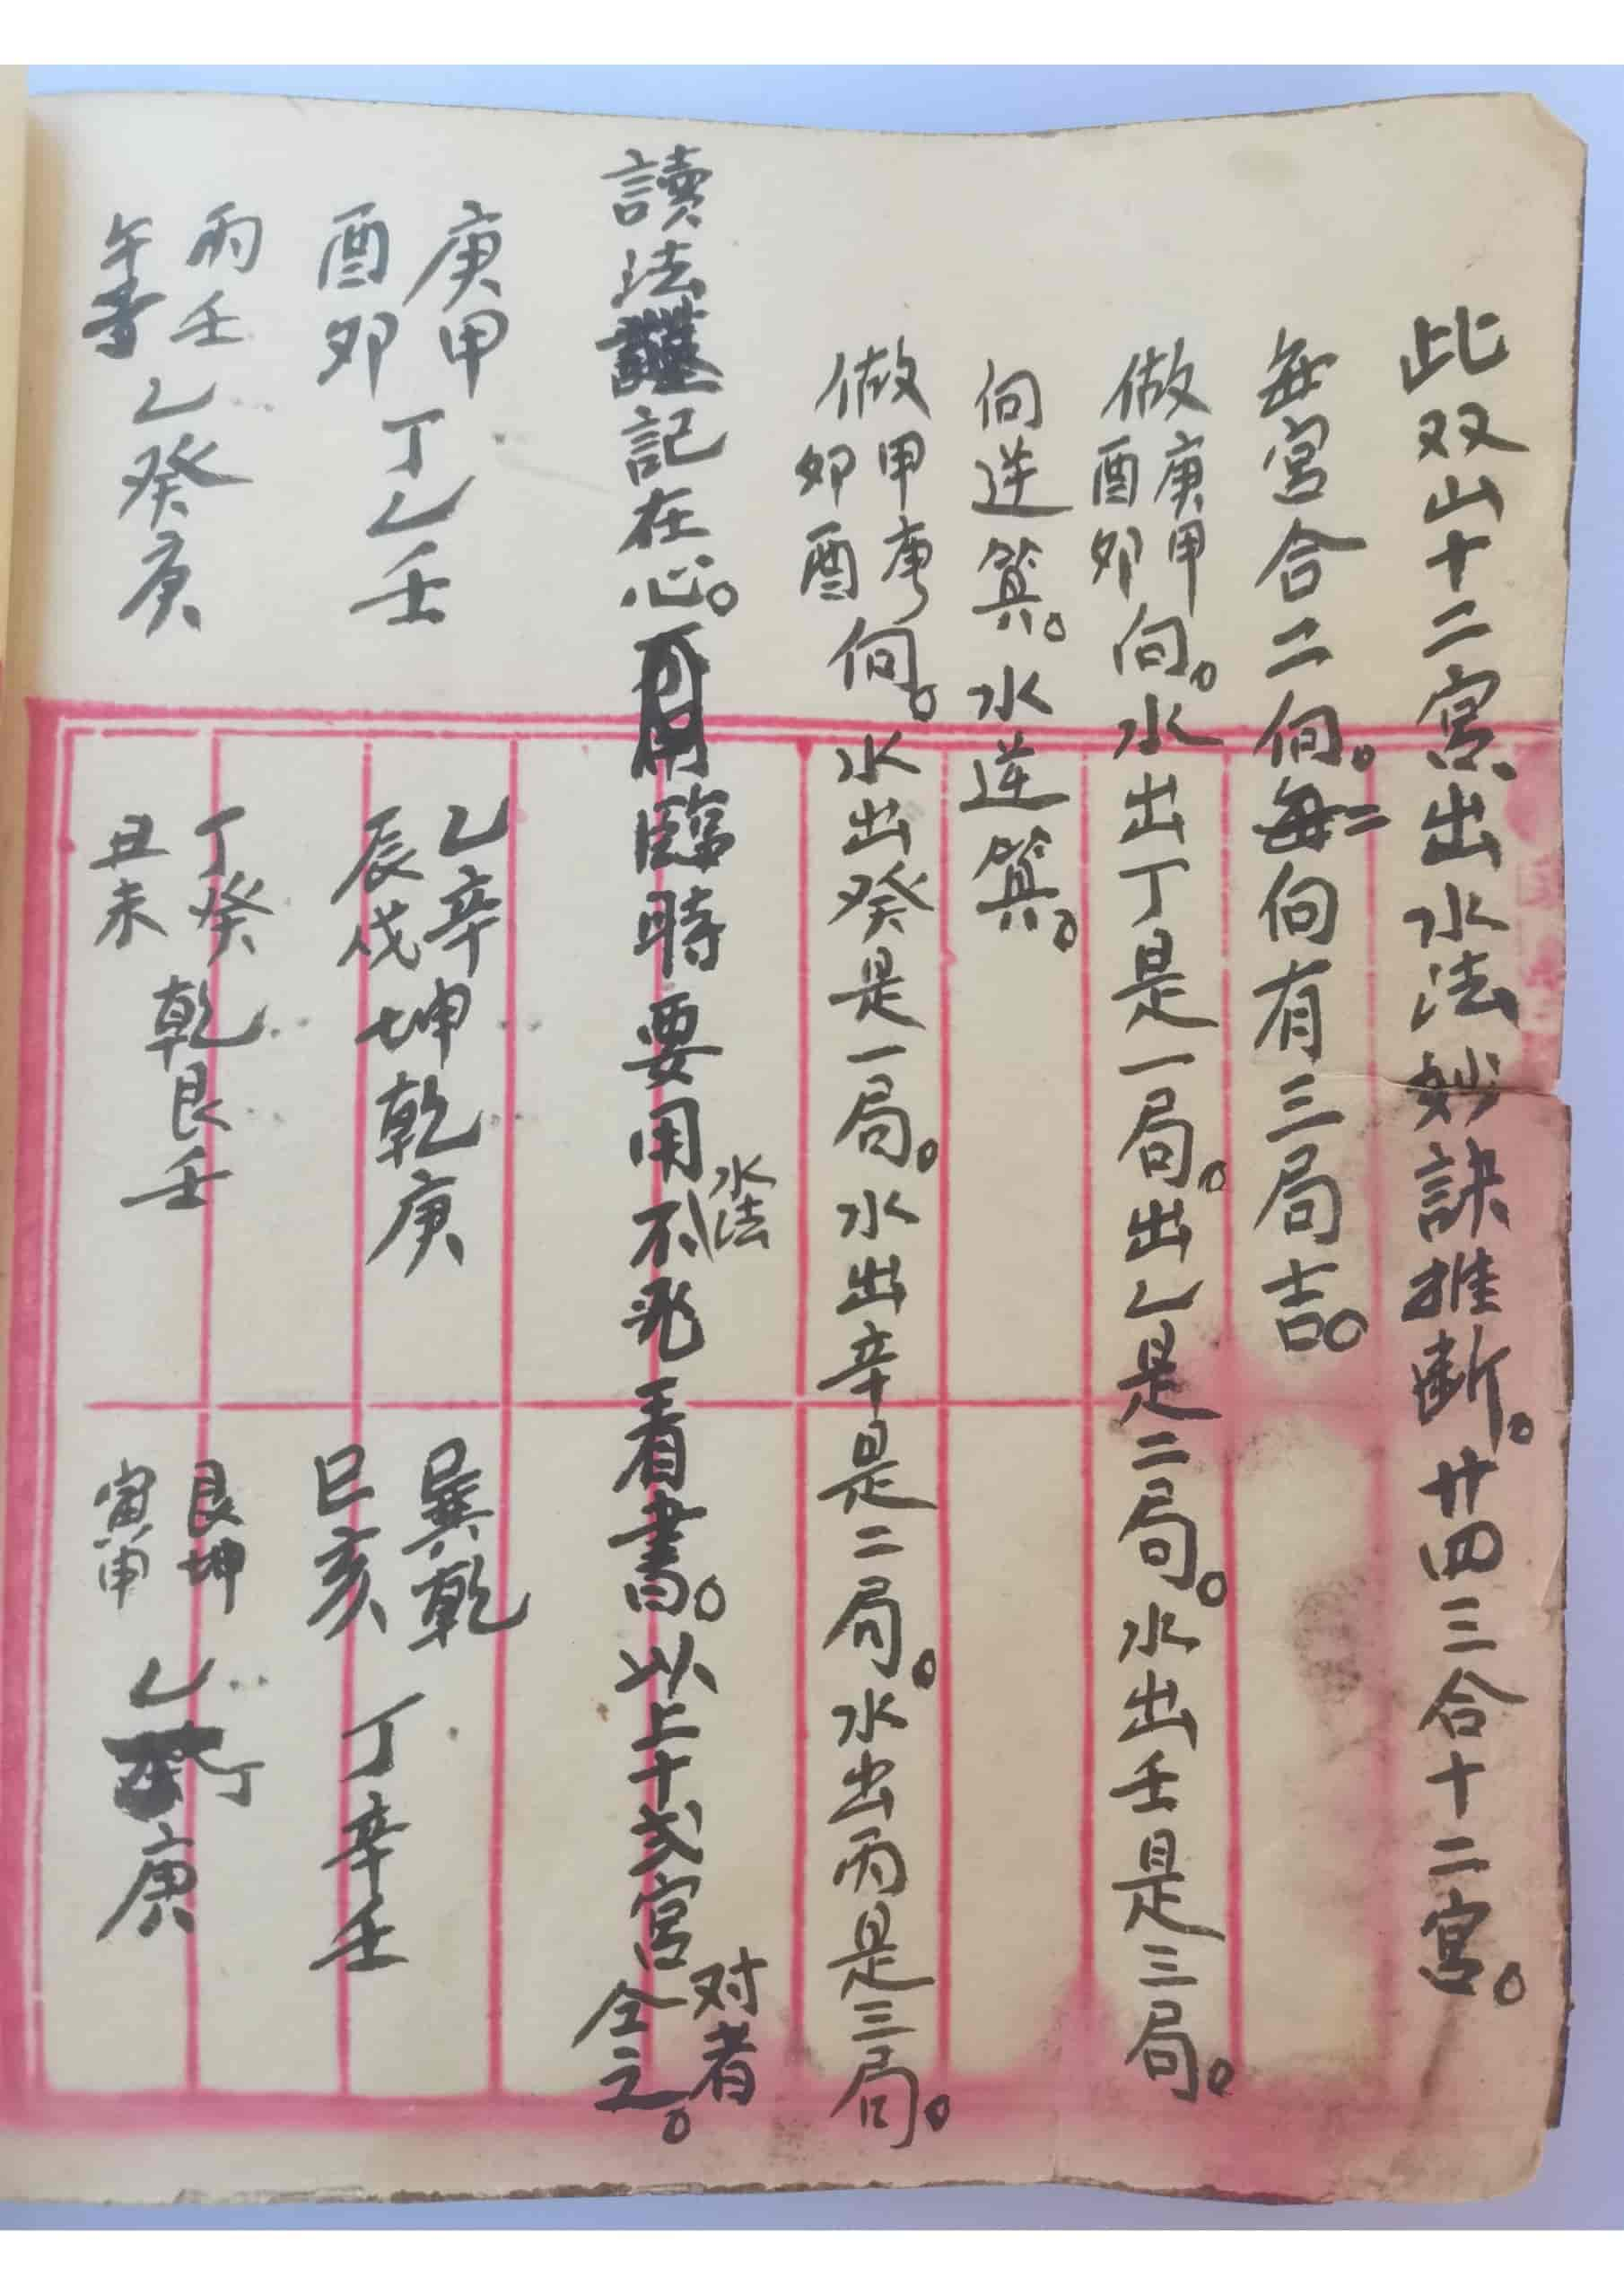 此双山十二宮出水法妙訣推断。廿四三合十二宮。
每宮合二向。二向有三局吉。
做庚甲酉卯向。水出丁是一局。出乙是二局。水出壬是三局。
向逆算。水逆算。
做甲庚卯酉向。水出癸是一局。水出辛是二局。水出丙是三局。
讀法謹記在心。臨時要用水法不兆看書。以上十弍宮对者仝之。
庚甲酉卯丁乙壬
乙辛辰戌坤乾庚
巽乾巳亥丁辛壬
丙壬午子乙癸庚
丁癸丑未乾艮壬
艮坤寅申乙丁庚